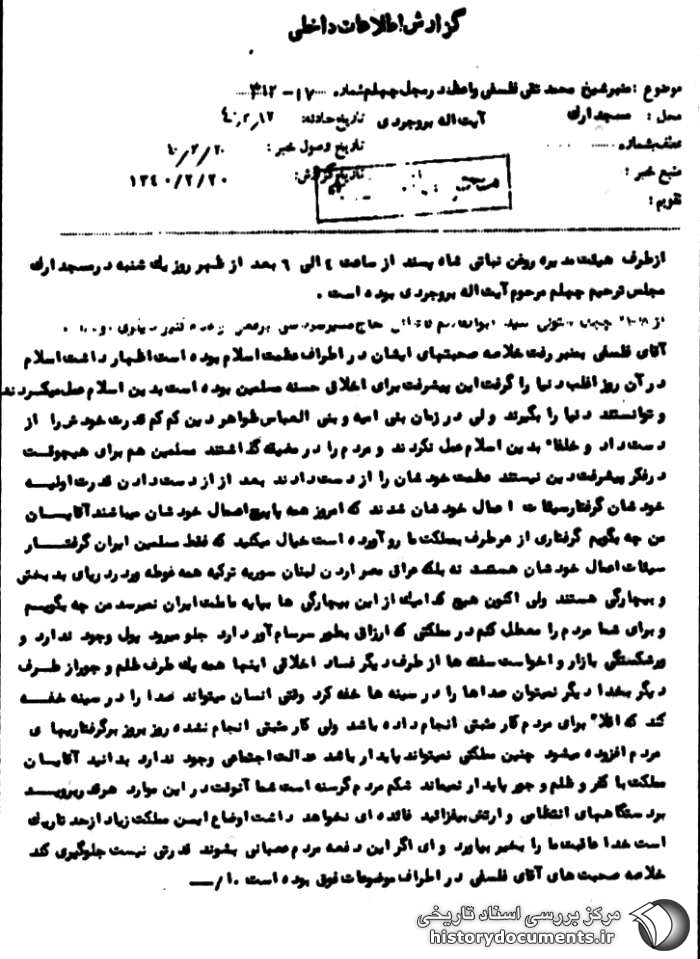 گزارش اطلاعات داخلی
موضوع : منبر شیخ محمد تقی فلسفی واعظ در مجل چهلم شماره ۱۷-۳۱۲
محل : مسجد ارك آیت اله بروجردی تاریخ حادثه: ۴۰٫۲٫۱۷
عطف بشماره تاریخ وصول خبر : ۴۰/۲/۲۰
منبع خبر : تاریخ گزارش: ۱۳۴۰/۲/۲۰
تقویم :
ازطرف هیئت مدیره روغن نباتی شاه پسند از ساعت ۴ الی ۶ بعد از ظهر روز یك شنبه در مسجد ارك
مجلس ترحیم چهلم مرحوم آیت اله بروجردی بوده است .
آقای فلسفی بمنبر رفت خلاصه صحبتهای ایشان در اطراف عظمت اسلام بوده است اظهار داشت اسلام
در آن روز اغلب دنیا را گرفت این پیشرفت برای اخلاق حسنه مسلمین بوده است بدین اسلام عمل میکردند
و توانستند دنیا را بگیرند ولی در زمان بنی امیه و بنی العباس ظواهر دین کم کم قدرت خودش را از
دست داد و خلفاء بدین اسلام عمل نکردند و مردم را در مضیقه گذاشتند مسلمین هم برای هیچوقت
در فکر پیشرفت دین نیستند عظمت خودشان را از دست دادند بعد از از دست دادن قدرت اولیه
خودشان گرفتار سیئات اعمال خودشان شدند که امروز همه پابپیچ اعمال خودشان میباشند آقایان
من چه بگویم گرفتاری از هر طرف بمملکت ما رو آورده است خیال میکنید که فقط مسلمین ایران گرفتار
سیئات اعمال خودشان هستند نه بلکه عراق مصر اردن لبنان سوریه ترکیه همه غوطه ور در دریای بدبختی
و بیچارگی هستند ولی اکنون هیچ کدامیك از این بیچارگی ها بپایه مملکت ایران نمیرسد من چه بگویم
و برای شما مردم را معطل کنم در مملکتی که ارزاق بطور سرسام آور دارد جلو میرود پول وجود ندارد و
ورشکستگی بازار و اخواست سفته ها از طرف دیگر فساد اخلاقی اینها همه یك طرف ظلم و جور از طرف
دیگر بخدا دیگر نمیتوان صداها را در سینه ها خفه کرد وقتی انسان میتواند صدا را در سینه خفه
کند که اقلاً برای مردم کار مثبتی انجام داده باشد ولی کار مثبتی انجام نشده روز بروز بر گرفتاریهای
مردم افزوده میشود چنین مملکتی نمیتواند پایدار باشد عدالت اجتماعی وجود ندارد بدانید آقایان
مملکت با کفر و ظلم و جور پایدار نمیماند شکم مردم گرسنه است شما آنوقت در این موارد هر روز
بر دستگاههای انتظامی و ارتش بیفزائید فائده ای نخواهد داشت اوضاع این مملکت زیاد از حد تاریك
است خدا عاقبت ما را بخیر بیاورد وای اگر این دفعه مردم عصبانی بشوند قدرتی نیست جلوگیری کند
خلاصه صحبت های آقای فلسفی در اطراف موضوعات فوق بوده است ۱۰/
مرکز بررسی اسناد تاریخی
historydocuments.ir